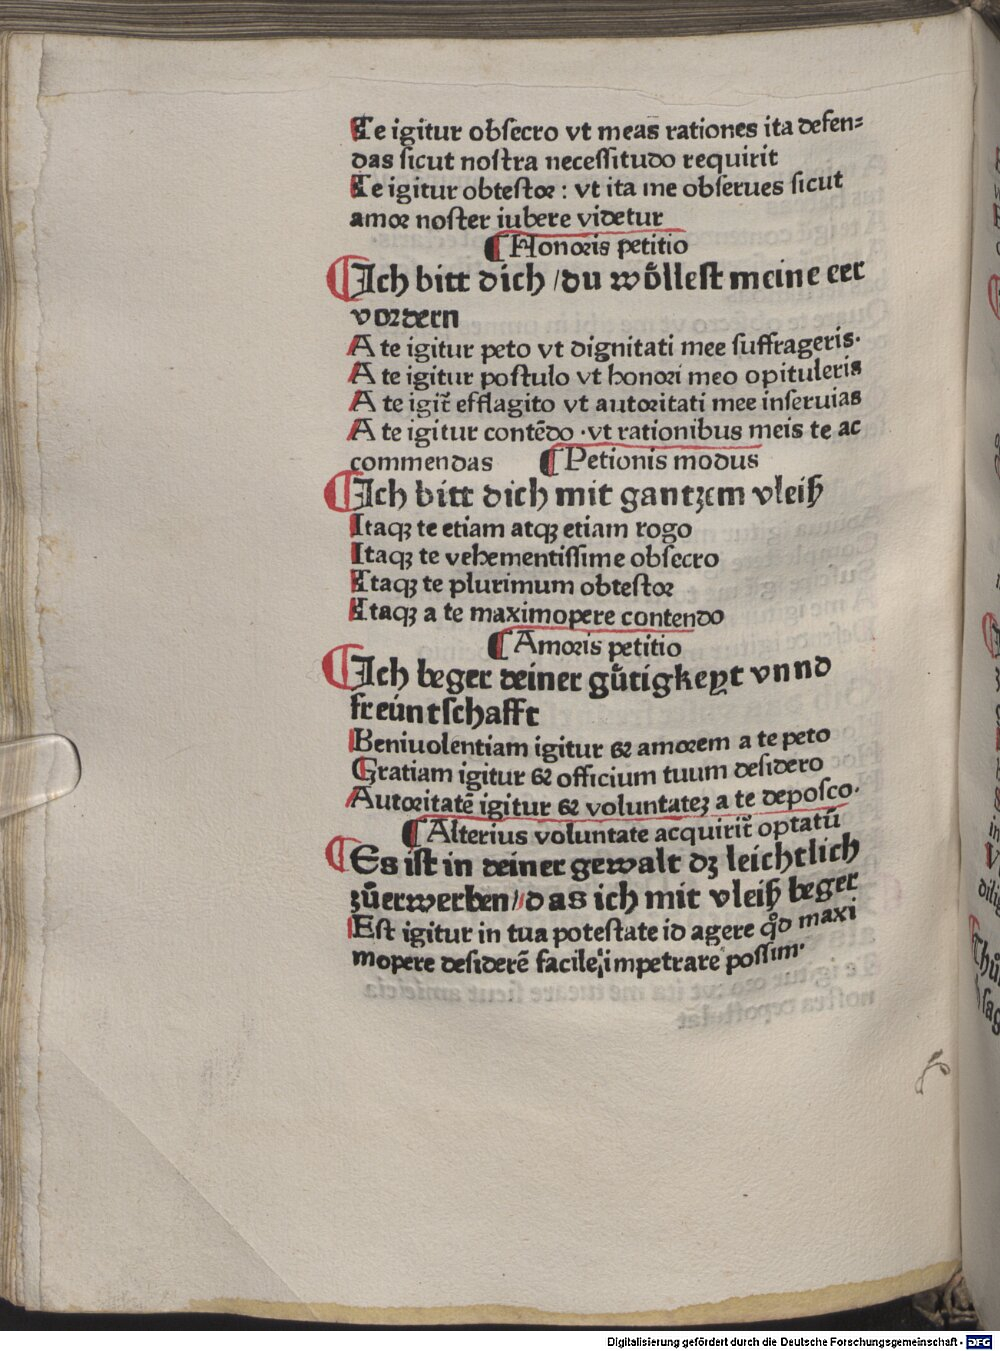 Te igitur obſecro vt meas rationes ita defen⸗
das ſicut noſtra neceſſitudo requirit
Te igitur obteſtoꝛ : vt ita me obſerues ſicut
amoꝛ noſter iubere videtur
¶ Honoꝛis petitio
¶ Ich bitt dich /du woͤlleſt meine eer
voꝛdern
A te igitur peto vt dignitati mee ſuffrageris·
A te igitur poſtulo vt honoꝛi meo opituleris
A te igit̃ efflagito vt autoꝛitati mee inſeruias
A te igitur contēdo ·vt rationibus meis te ac
commendas ¶ Petionis modus
¶ Ich bitt dich mit gantzem vleiß
Itaqꝫ te etiam atqꝫ etiam rogo
Itaqꝫ te vehementiſſime obſecro
Itaqꝫ te plurimum obteſtoꝛ
Itaqꝫ a te maximopere contendo
¶ Amoꝛis petitio
¶ Ich beger deiner guͤtigkeyt vnnd
freüntſchafft
Beniuolentiam igitur & amoꝛem a te peto
Gratiam igitur & officium tuum deſidero
Autoꝛitatē igitur & voluntateꝫ a te depoſco·
¶ Alterius voluntate acquirit̃ optatū
¶ Es iſt in deiner gewalt dꝫ leichtlich
zůerwerben/das ich mit vleiß beger
Eſt igitur in tua poteſtate id agere qḋ maxi
mopere deſiderē facile impetrare poſſim·
Digitalisierung gefördert durch die Deutsche Forschungsgemeinschaft - DFG